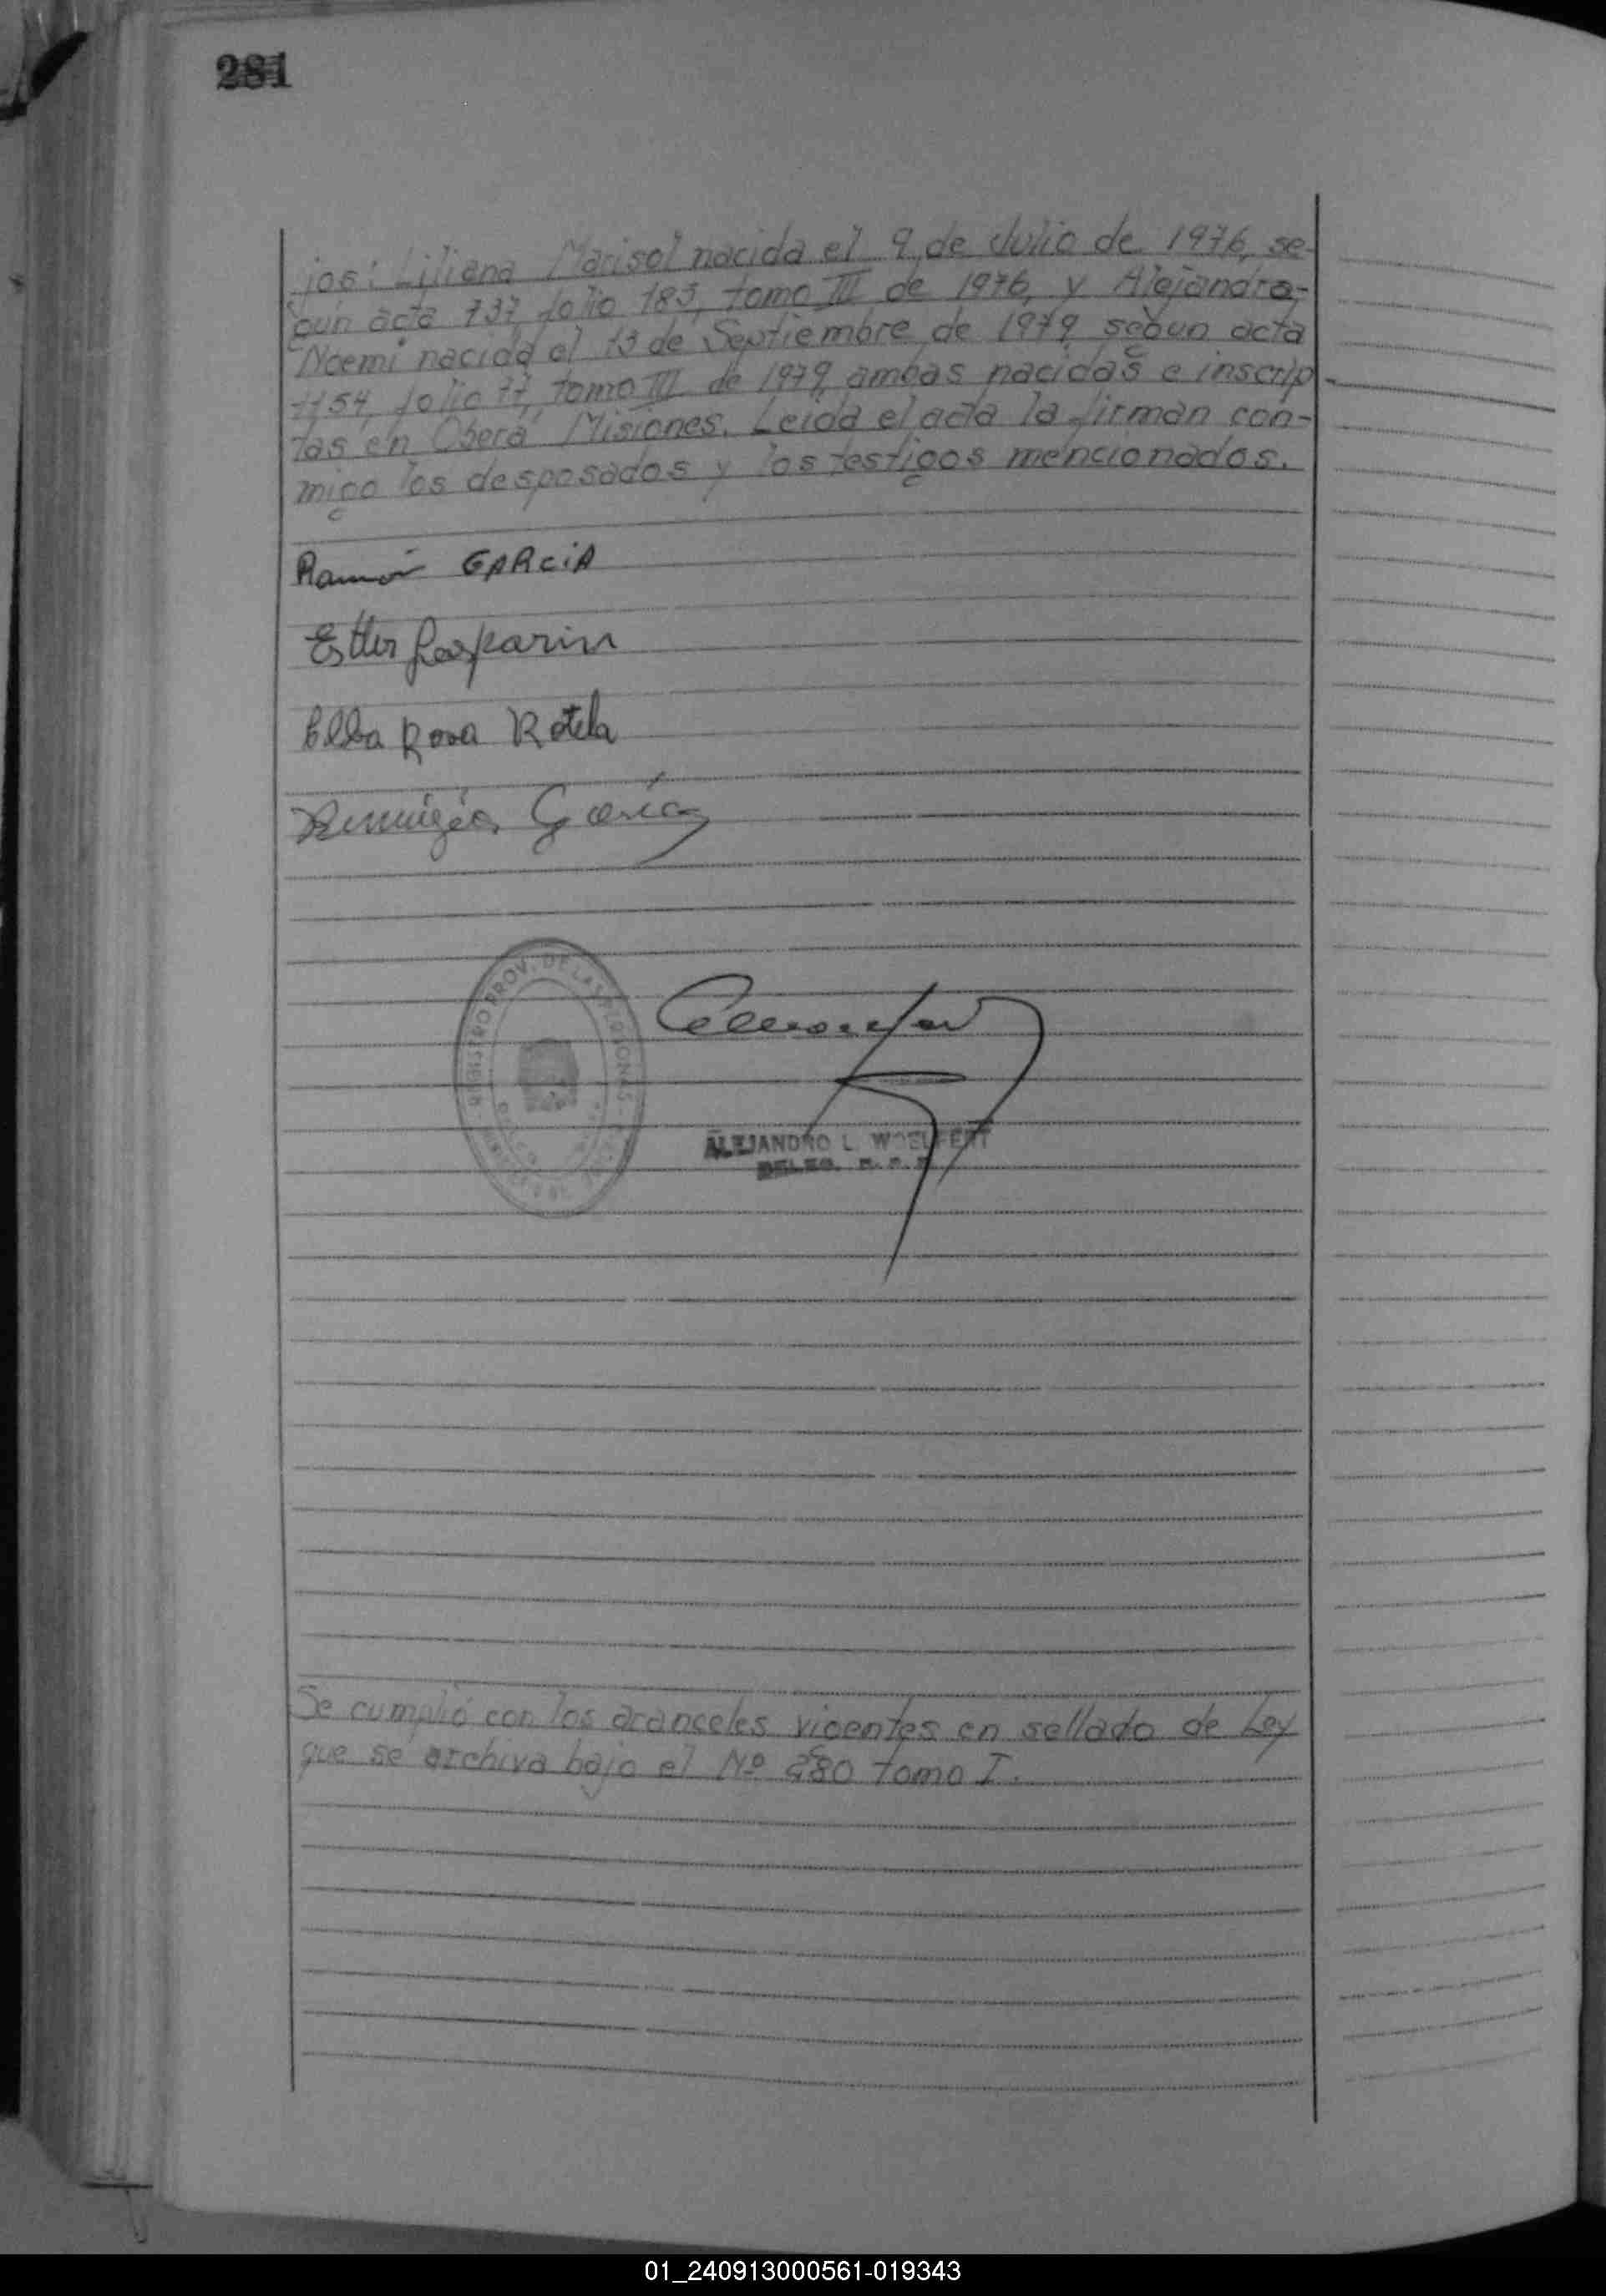 281
jos: Liliana Marisol nacida el 9 de Julio de 1976, se-
gún acta 737, folio 183, tomo III de 1976, y Alejandra
Noemí nacida el 13 de Septiembre de 1979 según acta
1154, folio 77, tomo III de 1979, ambas nacidas e inscrip-
tas en Oberá Misiones. Leida el acta la firman con-
migo los desposados y los testigos mencionados.
Ramón GARCIA
Esther Gasparin
Elba Rosa Rotela
Remigia García
REGISTRO PROV. DE LAS PERSONAS
ALEJANDRO L. WOELFERT
DELEG. R. P. P.
Se cumplió con los aranceles vigentes en sellado de Ley
que se archiva bajo el Nº 280 tomo I.
01_240913000561-019343